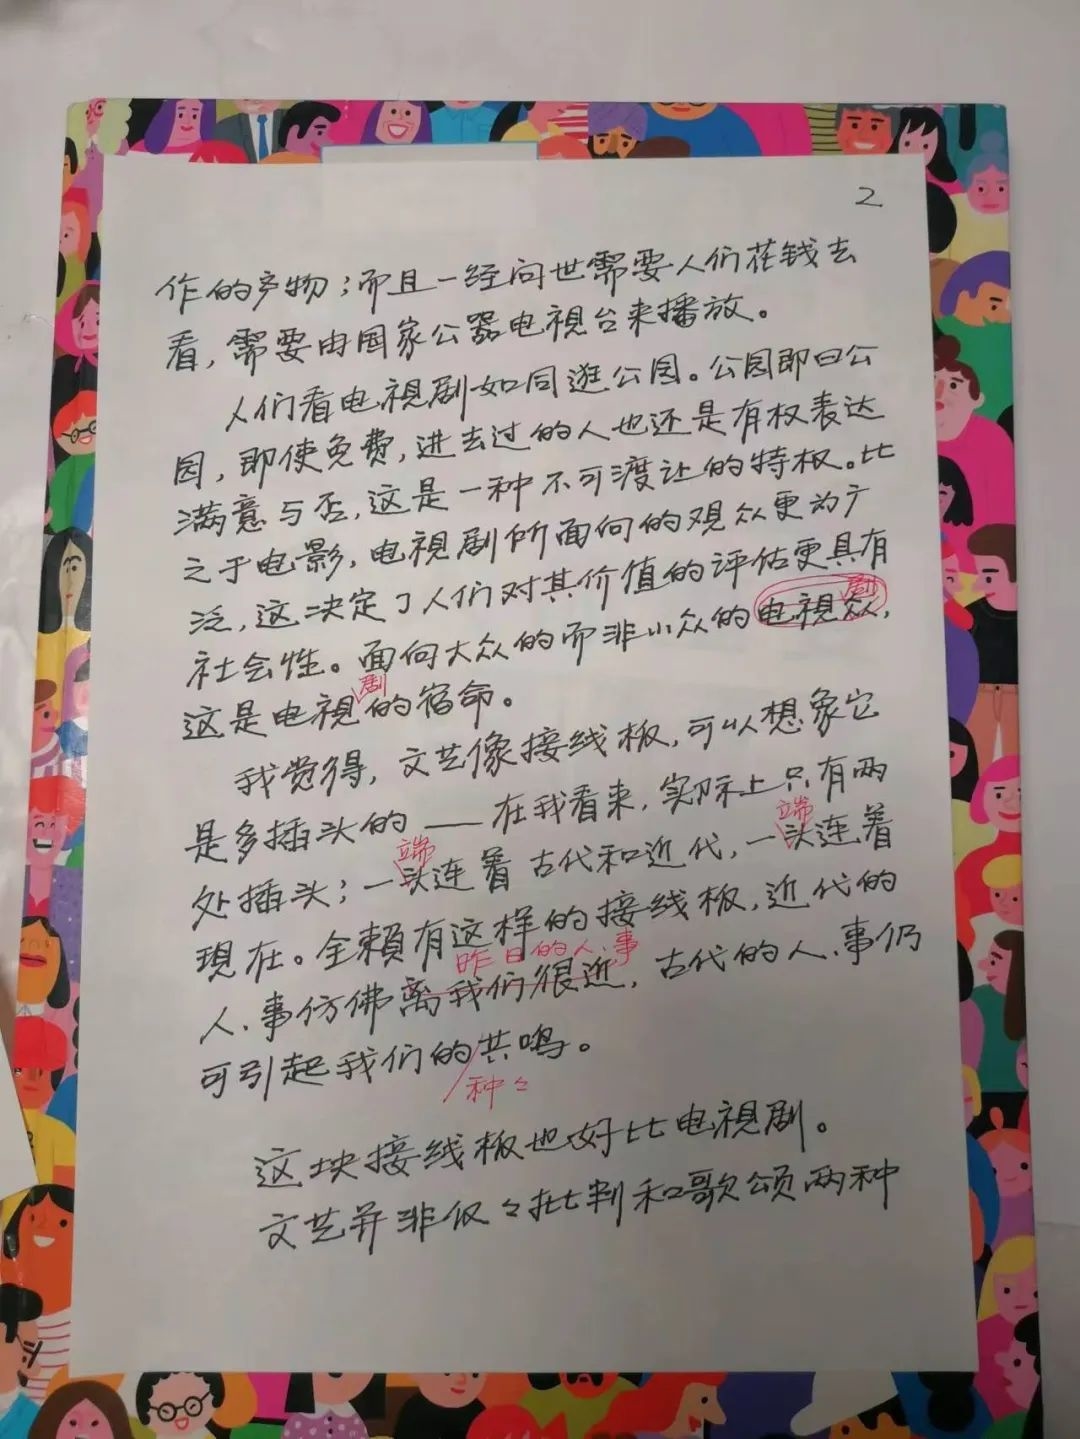 2
作的产物；而且一经问世需要人们花钱去
看，需要由国家公器电視台来播放。
人们看电視剧如同逛公园。公园即曰公
园，即使免费，进去过的人也还是有权表达
满意与否，这是一种不可渡让的特权。比
之于电影，电視剧所面向的观众更为广
泛，这决定了人们对其价值的评估更具有
剧
社会性。面向大众的而非小众的电視众，
剧
这是电視的宿命。
我觉得，文艺像接线板，可以想象它
是多插头的——在我看来，实际上只有两
端 端
处插头；一头连着古代和近代，一头连着
現在。全賴有这样的接线板，近代的
昨日的人、事
人、事仿佛离我们很近，古代的人、事仍
可引起我们的共鸣。
种々
这块接线板也好比电視剧。
文艺并非仅々批判和歌颂两种